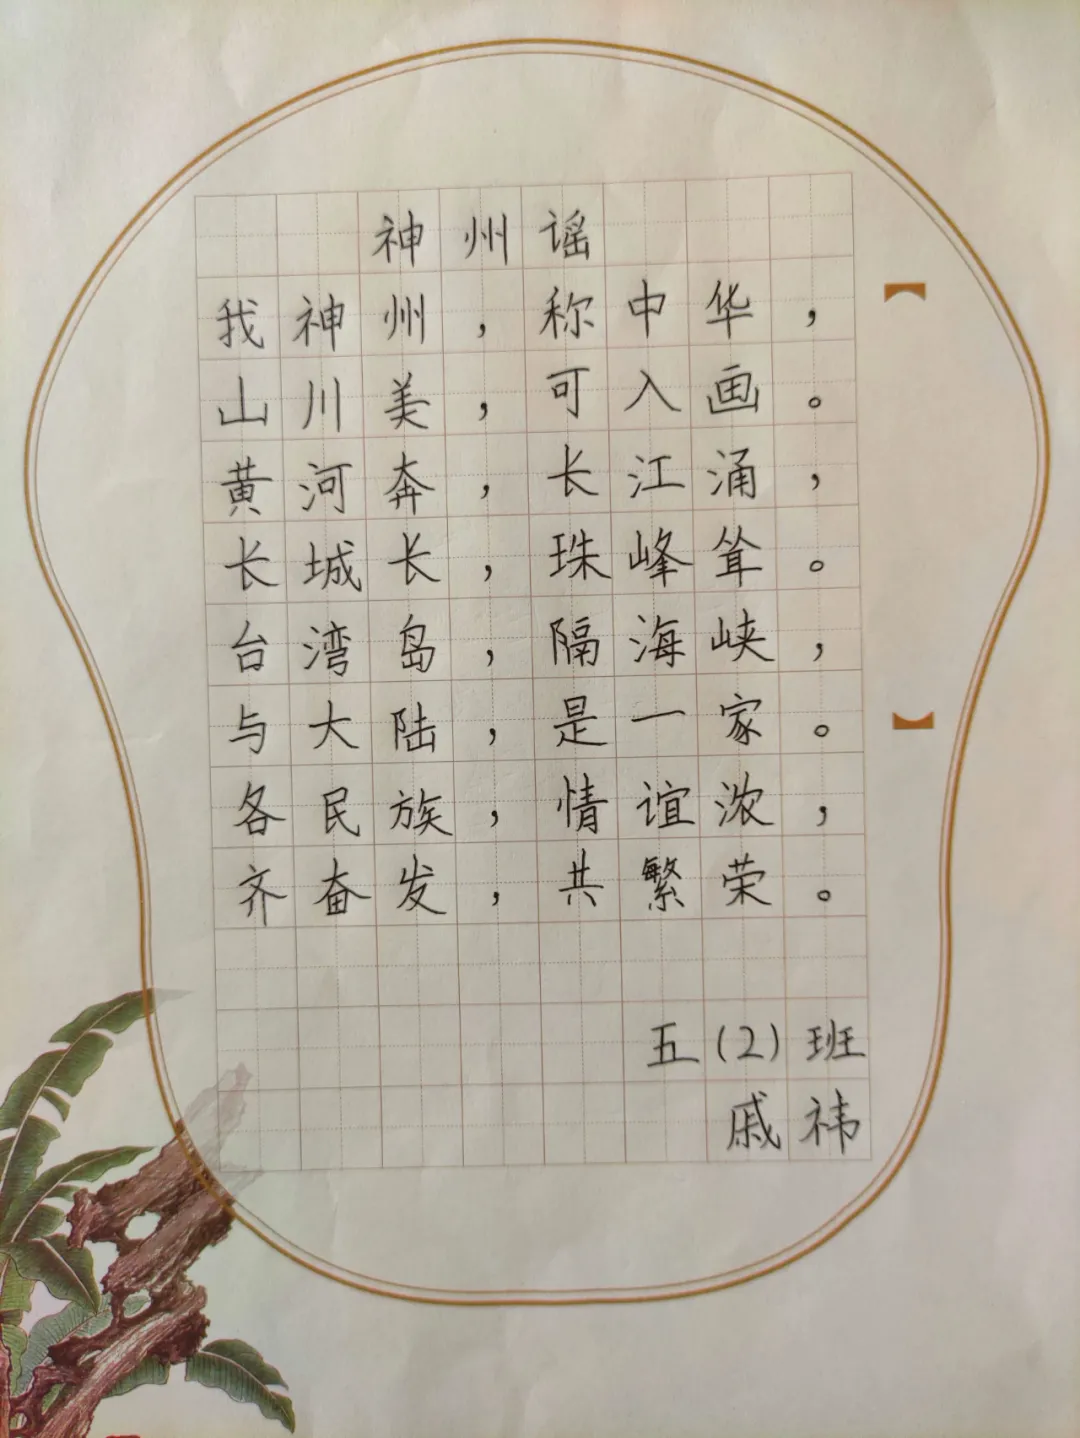 神州谣
我神州，称中华，
山川美，可入画。
黄河奔，长江涌，
长城长，珠峰耸。
台湾岛，隔海峡，
与大陆，是一家。
各民族，情谊浓，
齐奋发，共繁荣。
五(2)班
戚祎